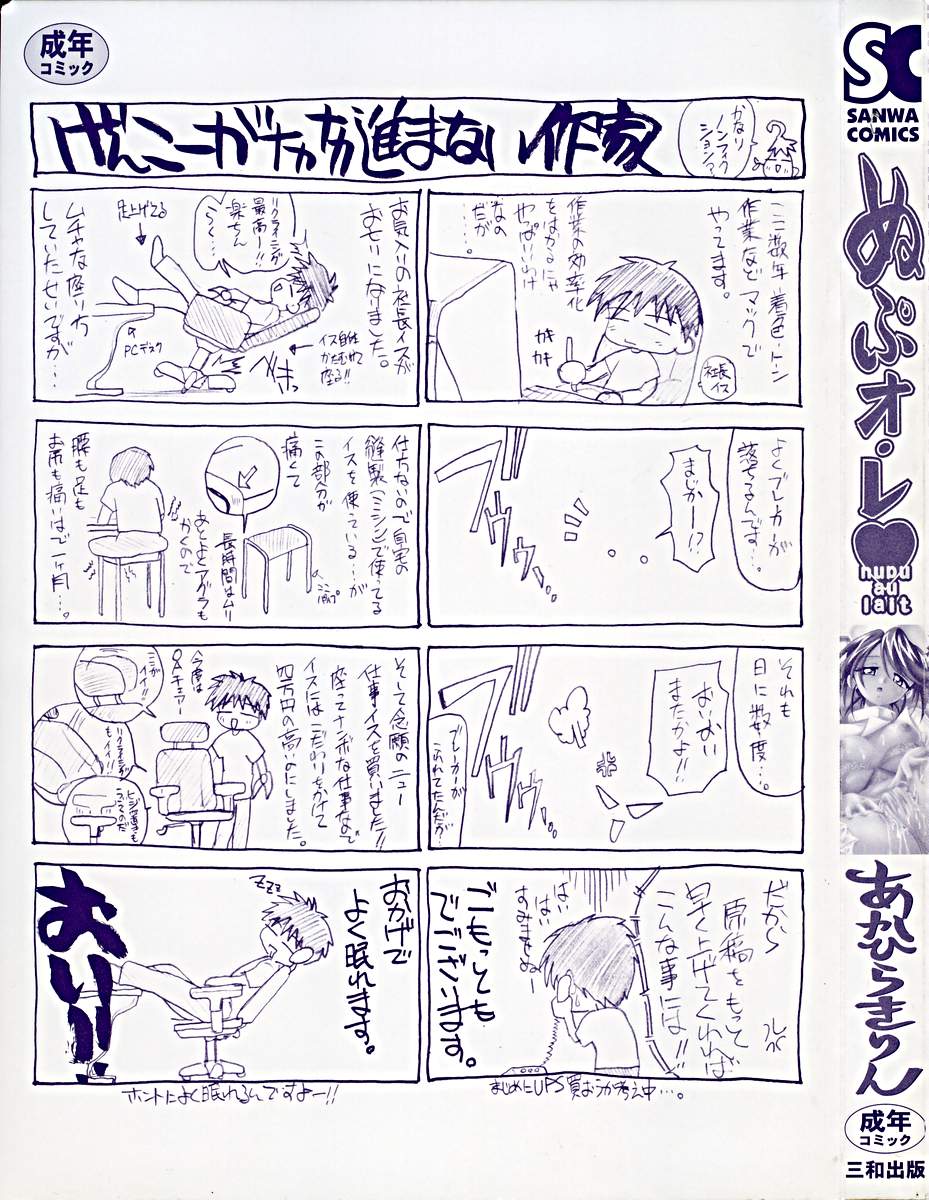 成年
コミック
げんこーがナカナカ進まない作家
かなり
ノンフィク
ションァ
ここ数年着色・トン
作業などマックで
やってます。
作業の効率化
をはかるにゃ
やっぱいいわけ
なの
だが
……
カキ
カキ
社長
イス
よくブレーカーが
落ちるんです…。
まじかー!?
それも
日に数度…。
おいおい
またかよ!!
ブレーカーが
だから
原稿をもって
早く上げてくれれば
こんな事には!!
はい
はい
すみませ
ごもっとも
でございます。
まじめにUPS買おうか考え中…。
お気入りの社長イスが
おもいになりました。
リクライニングが
最高ー!!
楽ちん
足上げてる
PCデスク
イス自体
かたむけて
座る!!
ムチャな座り方
していたせいですが…
仕方ないので自宅の
縫製(ミシン)で使ってる
イスを使っている…が
この部分が
痛くて
長時間はムリ
あとよくアグラも
かくので
腰も足も
お尻も痛いはで一ヶ月…。
そして念願のニュー
仕事イスを買いました!!
座ってナンボな仕事なので
イスにはこだわりをかけて
四万円の高いのにしました。
今度は
OAチェアー
ここが
イイ!!
リクライニングが
もイイ!!
おかげで
よく眠れます。
zzz
おいり
ホントによく眠れるんですよー!!
SC
SANWA
COMICS
ぬぷオ・レ♥
nupu
au
lait
あかひらきりん
成年
コミック
三和出版